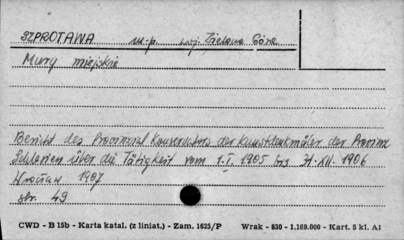 SZPROTAWA m-p. woj. Zielona Góra
Mury miejskie
Bericht des Provinzial Konservators der Kunstdenkmäler der Provinz
Schlesien über die Tätigkeit vom 1.I. 1905 bis 31.XII. 1906
Wrocław 1907
str. 49
CWD - B 15b - Karta katal. (z liniat.) - Zam. 1625/P Wrak - 830 - 1.169.000 - Kart. 5 kl. A1